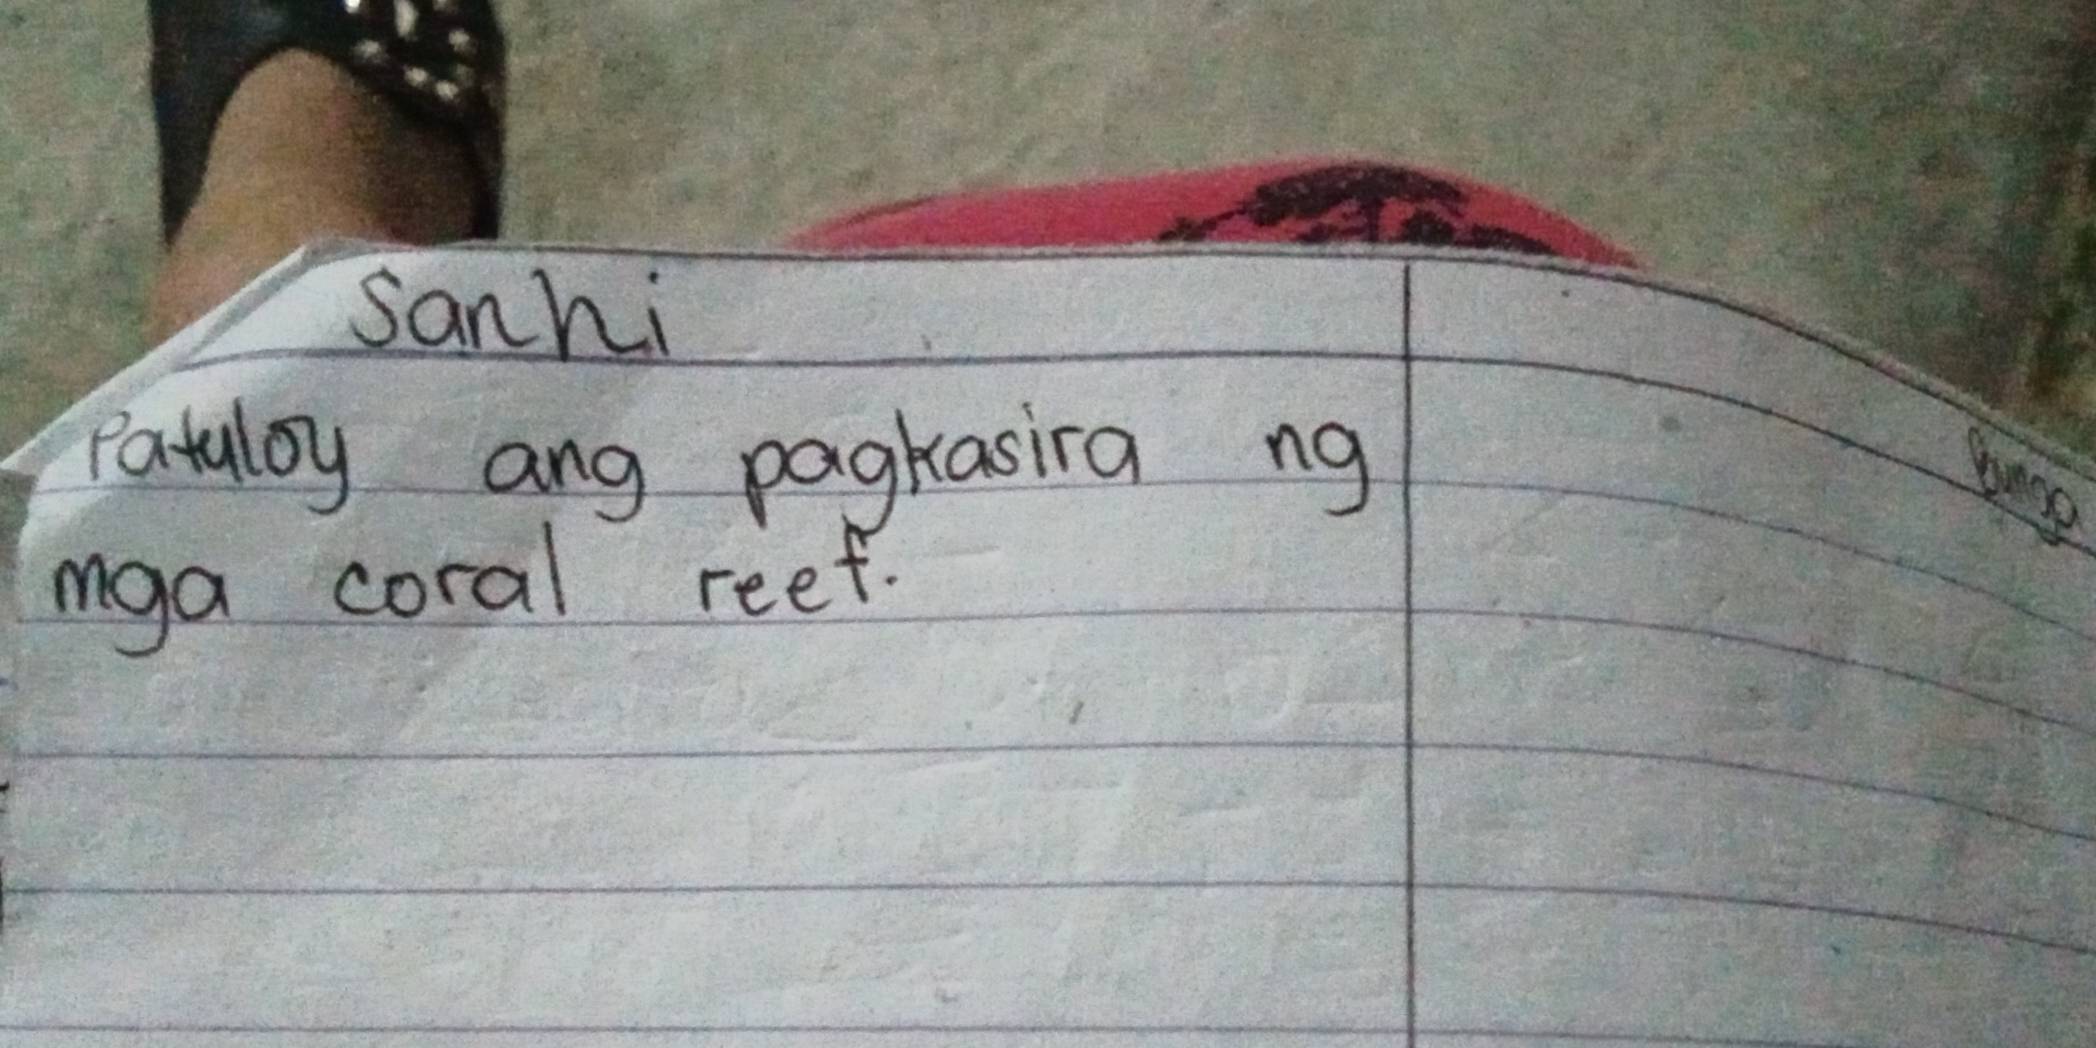 Sanhi
Bunga
Patuloy ang pagkasira ng
mga coral reef.